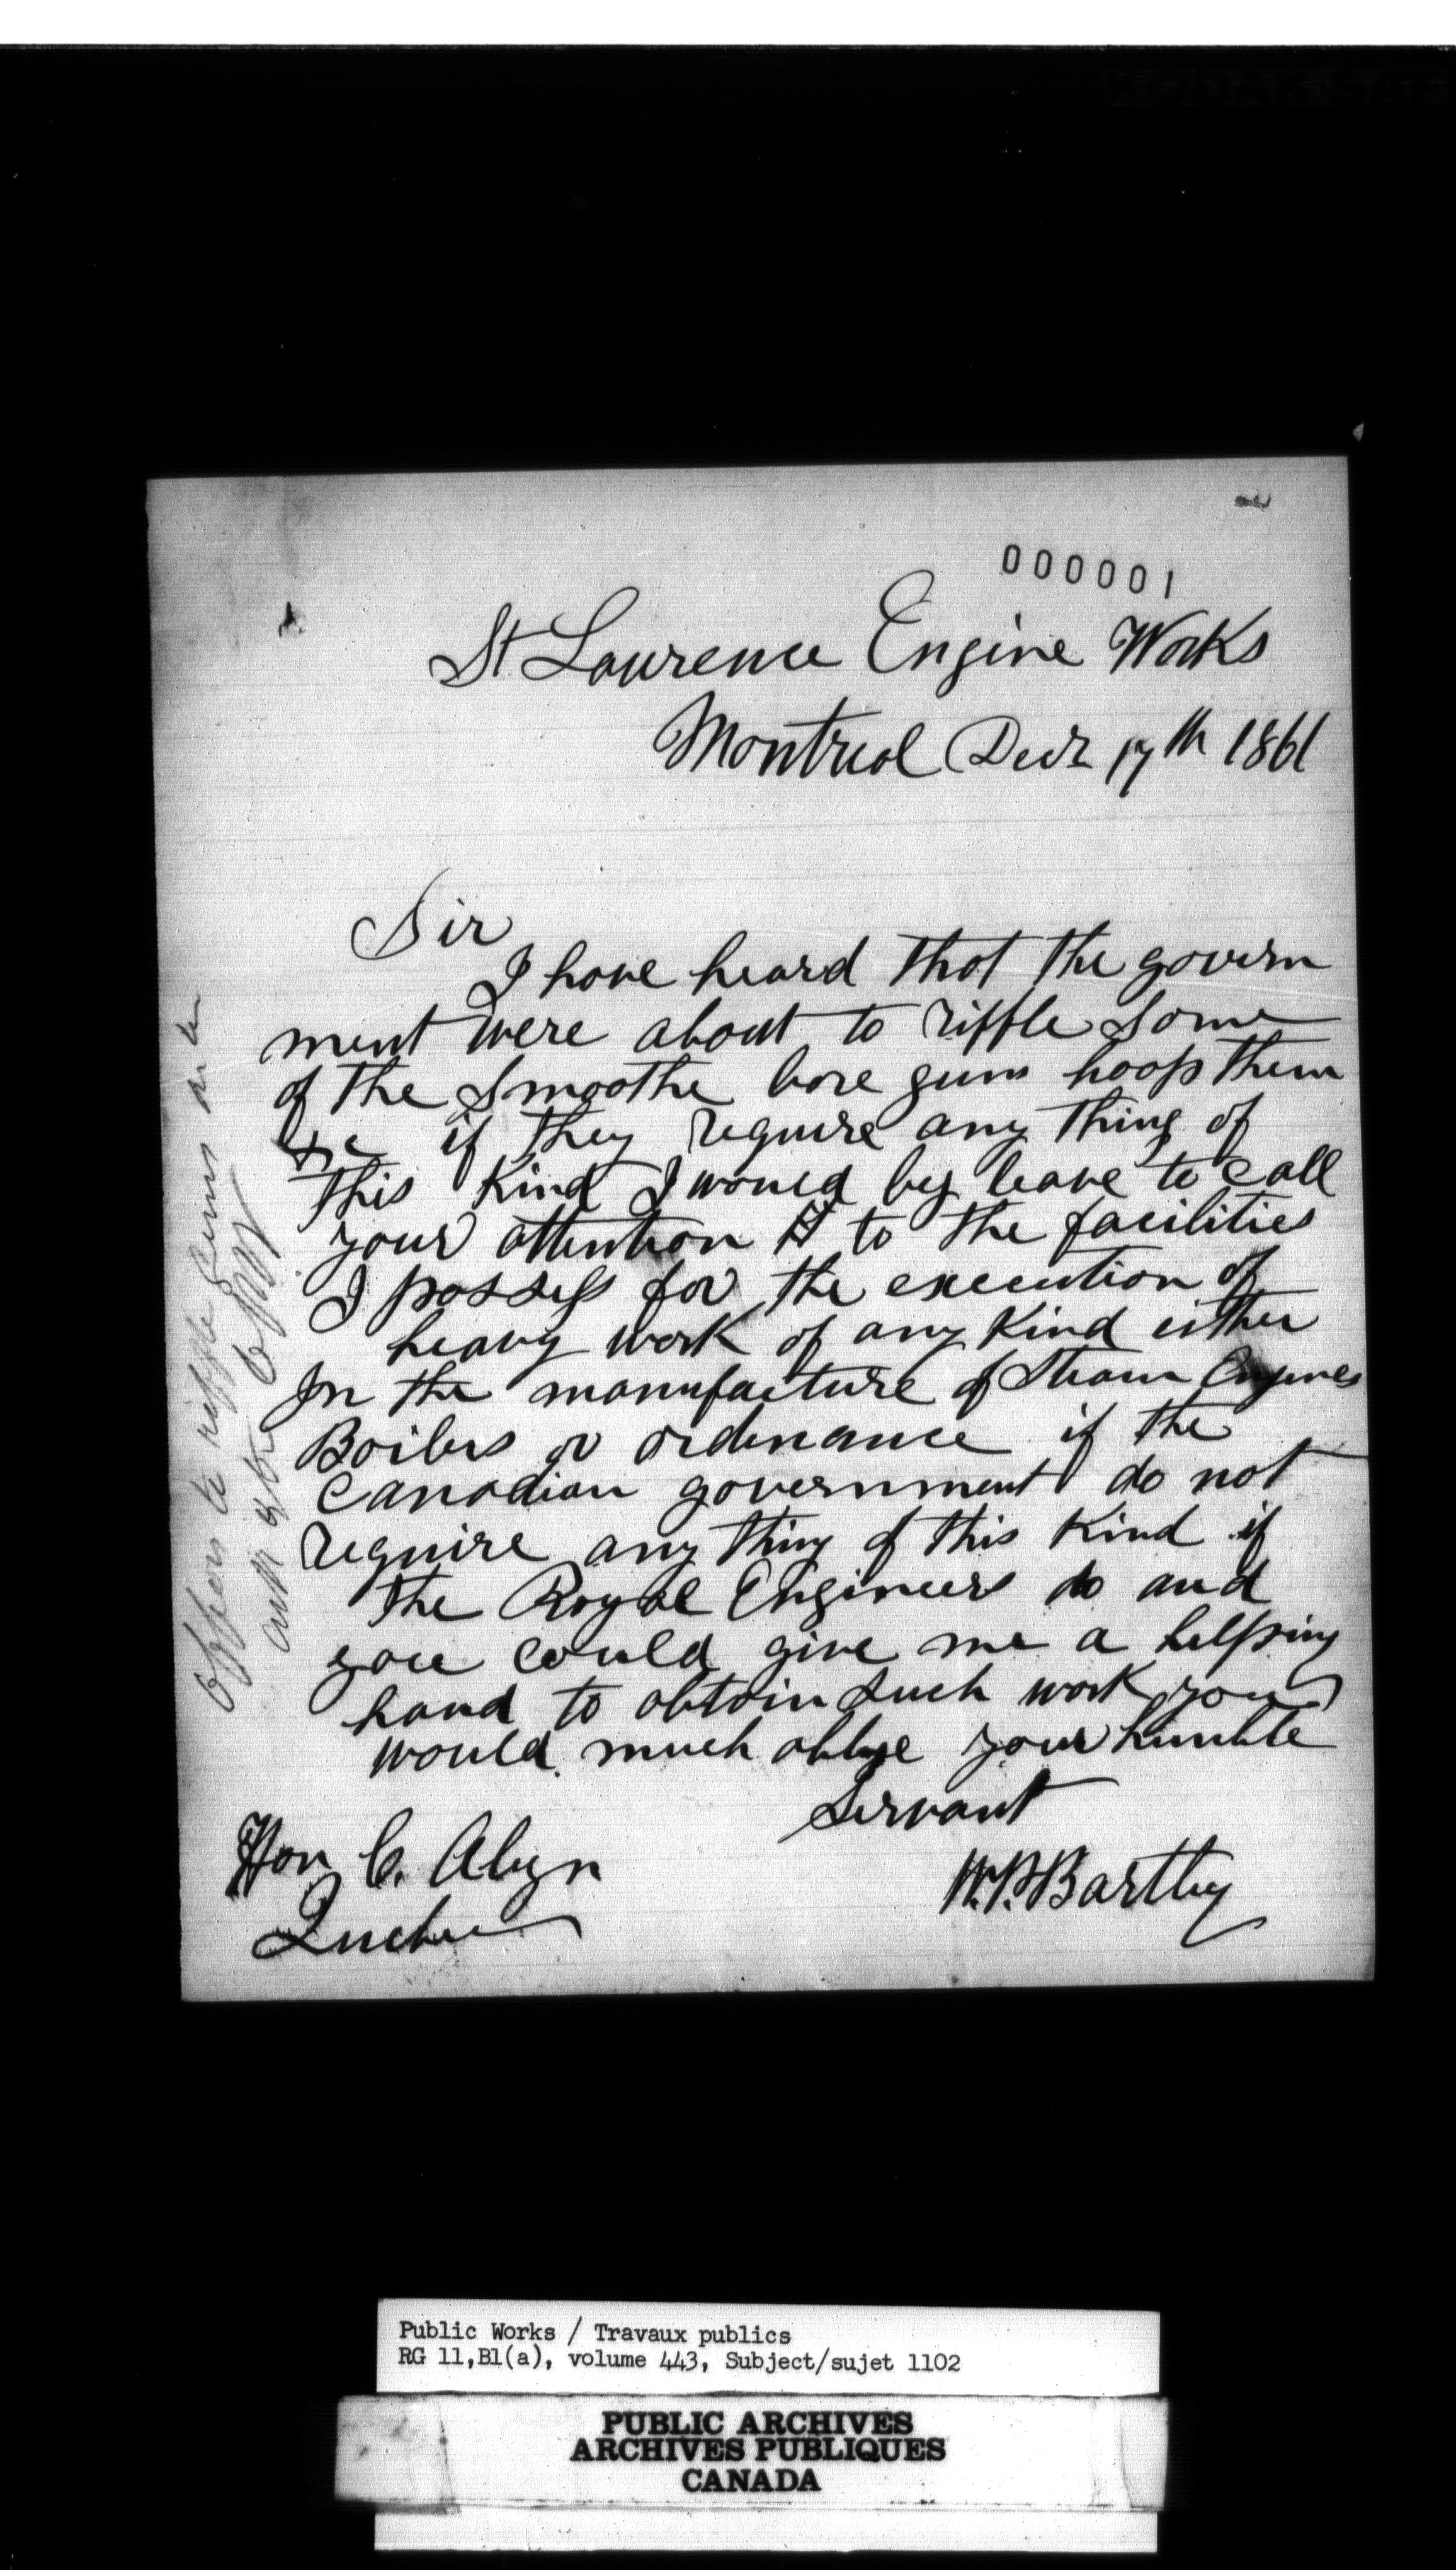 000001
St Lawrence Engine Works
Montreal Decr 17th 1861
Sir
I have heard that the govern
ment were about to riffle some
of the smoothe bore guns hoop them
&c if they require any thing of
this kind I would beg leave to call
your attention to the facilities
I possess for the execution of
heavy work of any kind either
In the manufacture of Steam Engines
Boilers or ordenance if the
Canadian government do not
require any thing of this kind if
the Royal Engineers do and
you could give me a helping
hand to obtain such work you
would much oblige your humble
Servant
W.P. Bartley
Hon C. Alyn
Quebec
Offers to riffle Guns
Public Works / Travaux publics
RG 11,B1(a), volume 443, Subject/sujet 1102
PUBLIC ARCHIVES
ARCHIVES PUBLIQUES
CANADA